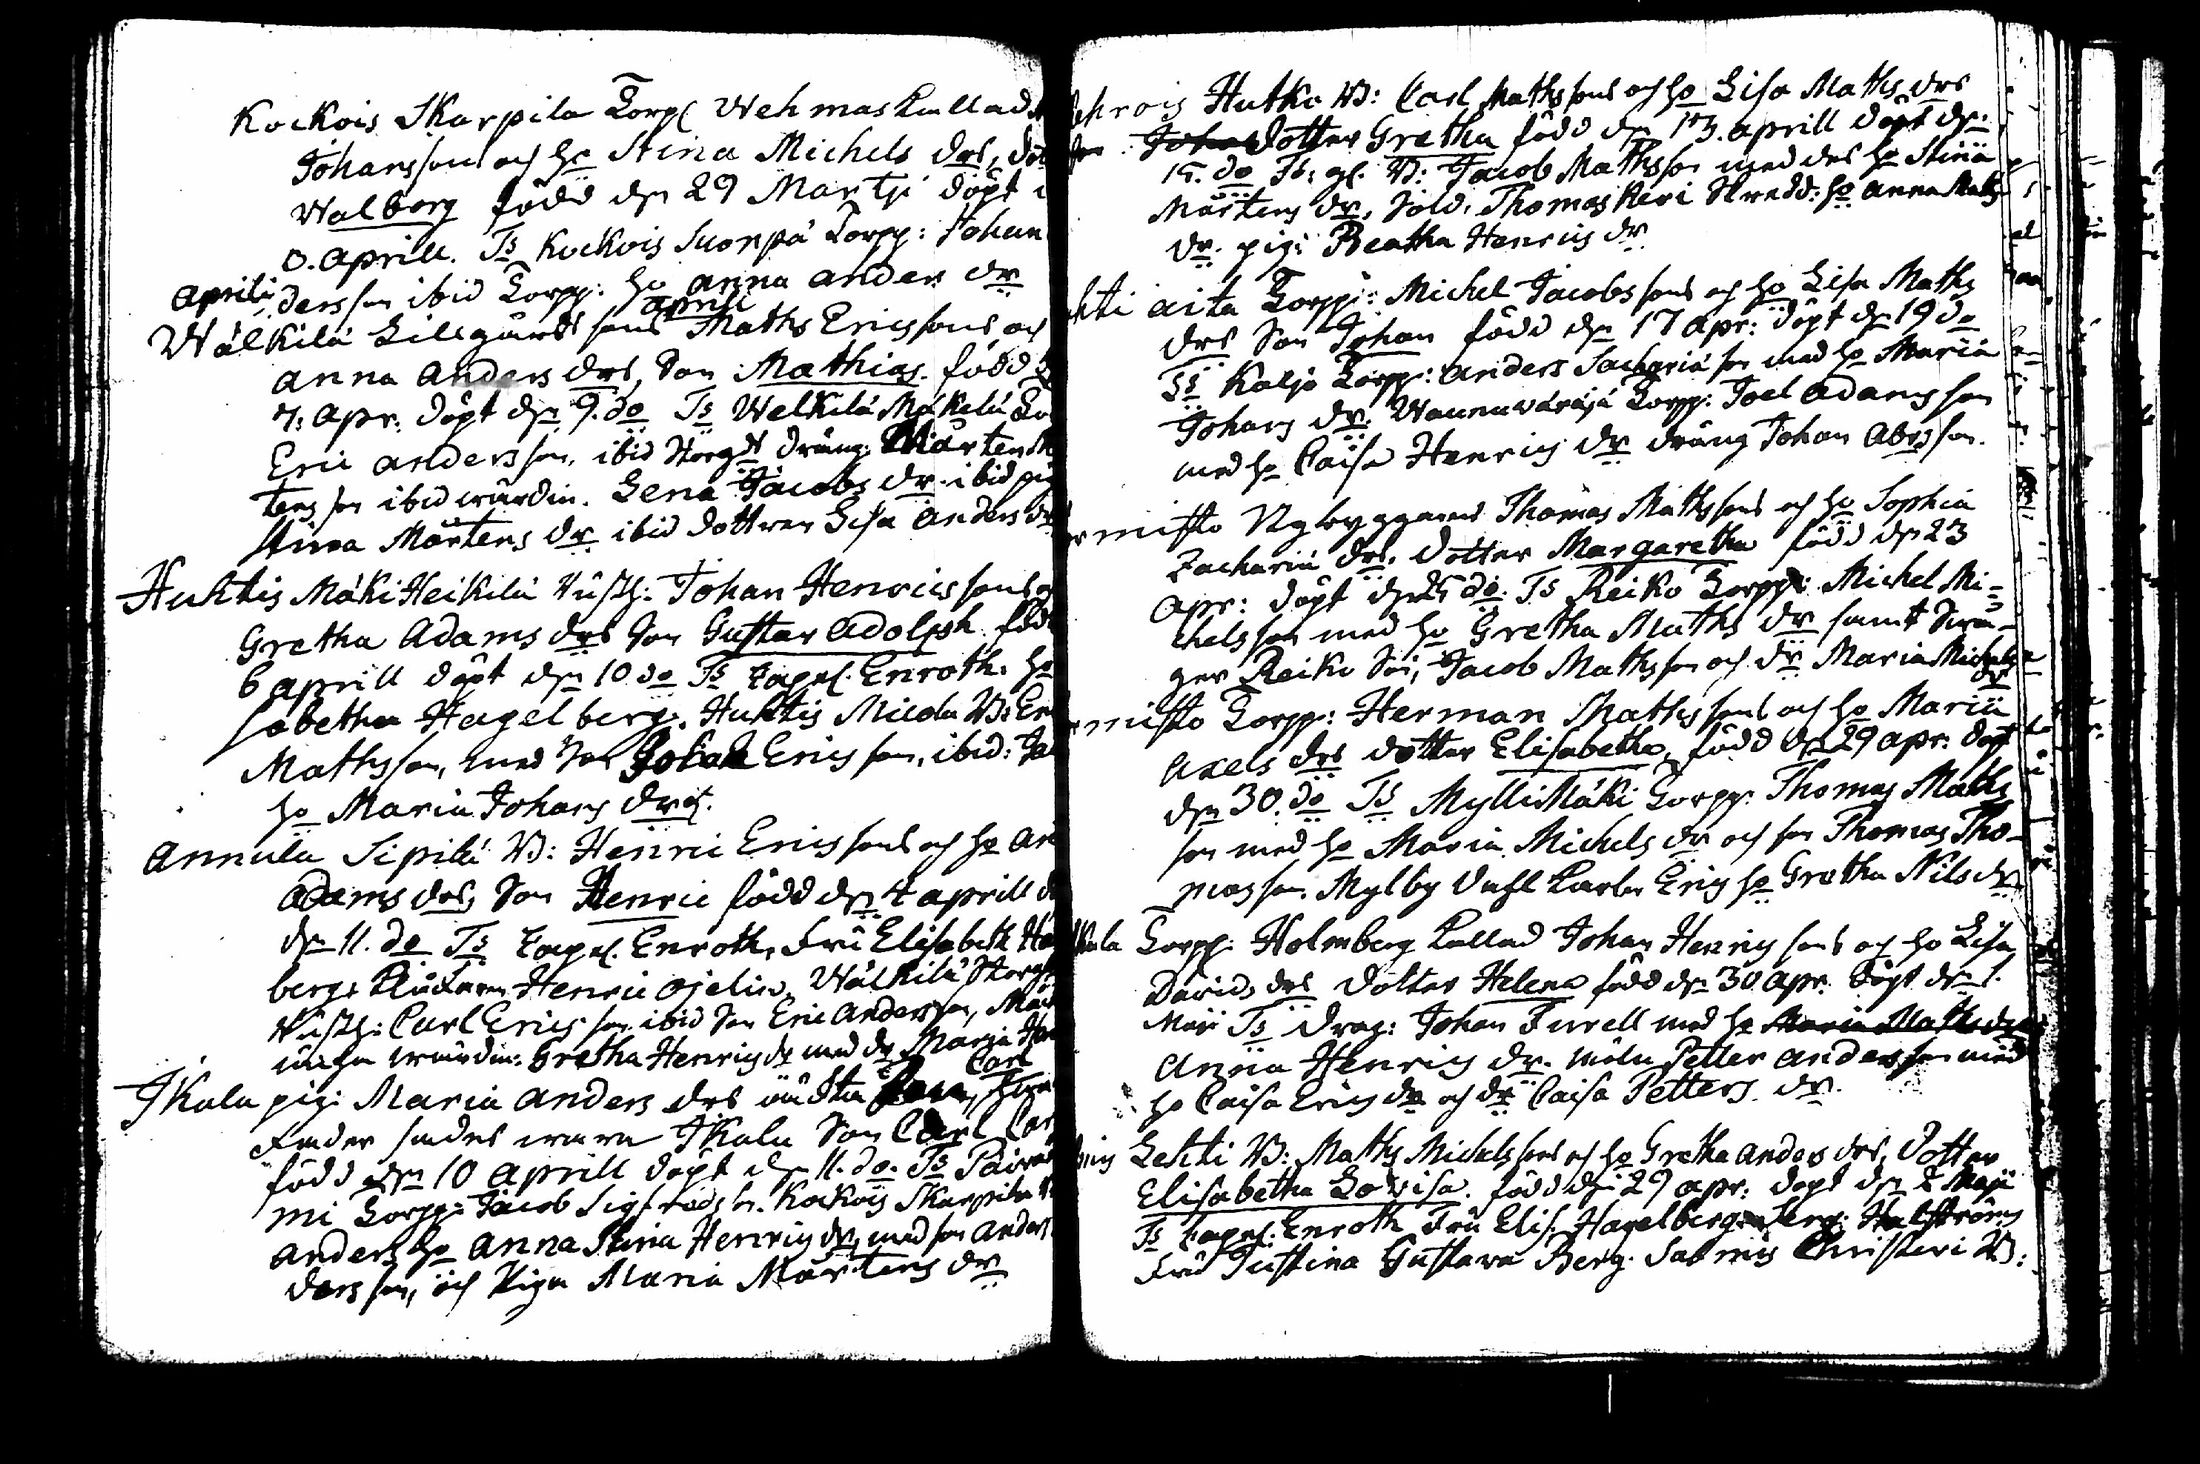 Kockois Skarpila Torp[ Wehmas kallad
Johanssons och ho Stina Michels drs, dot
Walborg född dn 29 Martji döpt
0. Aprill. Ts Kockois Suorpä Torpp: Johan
Aprili dersson ibid Torpp: ho Anna Anders dr
aprill
Wälkilä Lillgårds sons Maths Ericssons och
Anna Anders drs, Son Mathias född
7: Apr. döpt dn 9. do Ts Welkilä Mäkelä
Eric Andersson, ibid Storgds dräng Mårten
tensson ibid wärdin. Lena Jacobs dr. ibid pig
Stina Mårtens dr ibid dottren Lisa Anders dr
Huhtis Mäki Heikilä Rusth: Johan Henricssons
Gretha Adams drs Son Gustav Adolph född
6 aprill döpt dn 10 do Ts Capel. Enroth. ho
sabetha Hagelberg, Huhtis Micola B: Er
Mathsson, med Son Johan Ericsson, ibid:
ho Maria Johans dr.
Annula Sipilä B: Henric Ericssons och ho An
Adams drs, Son Henric född dn 4 aprill
dn 11. do Ts Capel. Enroth, Fru Elisabeth Ha
berg, Henric Ojelin, Wälkilä Storg
Rusth: Carl Ericsson ibid Son Eric Andersson,
wärdin: Gretha Henrics dr med dr Maria
Carl
Jkala pig: Maria Anders drs oächta Son,
Fader sades wara Jkala Son Carl Car
född dn 10 Aprill döpt dn 11. do. Ts Päiwä
mi Torpp: Jacob Sigfreds sn. Kockois Skarpila
Anders ho Anna Stina Henrics dr, med son Anders
dersson, och Piga Maria Mårtens dr
Hutko B: Carl Mathssons och ho Lisa Maths drs
Dotter Gretha född dn 13. aprill döpt dn
15. do Ts: gl. B: Jacob Mathsson med dess ho Stina
Mårtens dr, Sold. Thomas Kevi Skredd: ho Anna Maths
dr. pig: Beatha Henrics dr
hti aita Torpp: Michel Jacobssons och ho Lisa Maths
drs Son Johan född dn 17 Apr: döpt dn 19 do
Ts Kaljo Torpp: Anders Sachariä son med ho Maria
Johans dr. Torpp: Joel Adamsson
med ho Caisa Henrics dr dräng Johan Abrsson.
misto Nybyggarens Thomas Mathssons och ho Sophia
Zachariä drs, Dotter Margaretha född dn 23
Apr: döpt dn 25 do. Ts Reiko Torpp: Michel Mi=
chelsson med ho Gretha Maths dr samt Swå-
ger Reiko Son, Jacob Mathsson och dr Maria Michels
dr
misto Torpp: Herman Mathssons och ho Maria
Axels drs dotter Elisabetha, född dn 29 apr. döpt
dn 30. do Ts Myllimäki Torpp: Thomas Maths
son med ho Maria Michels dr och son Thomas Tho-
masson, Mylby Eric ho Gretha Nils dr
kala Torpp: Holmberg kallad Johan Henrics sons och ho Lisa
Davids drs Dotter Helena född dn 30 Apr. döpt dn 1.
Maji Ts Drag: Johan Furell med ho Maria Maths dr
Anna Henrics dr. Petter Andersson med
ho Caisa Erics dr och dr Caisa Petters dr.
Lehti B: Maths Michelssons och ho Gretha Anders drs, Dotter
Elisabetha Lovisa, född dn 29 apr: döpt dn 2 Maji
Ts Capel: Enroth Fru Elis: Hagelberg, Serg: Halström
Fru Justina Gustava Berg. Salmis Christeri B: